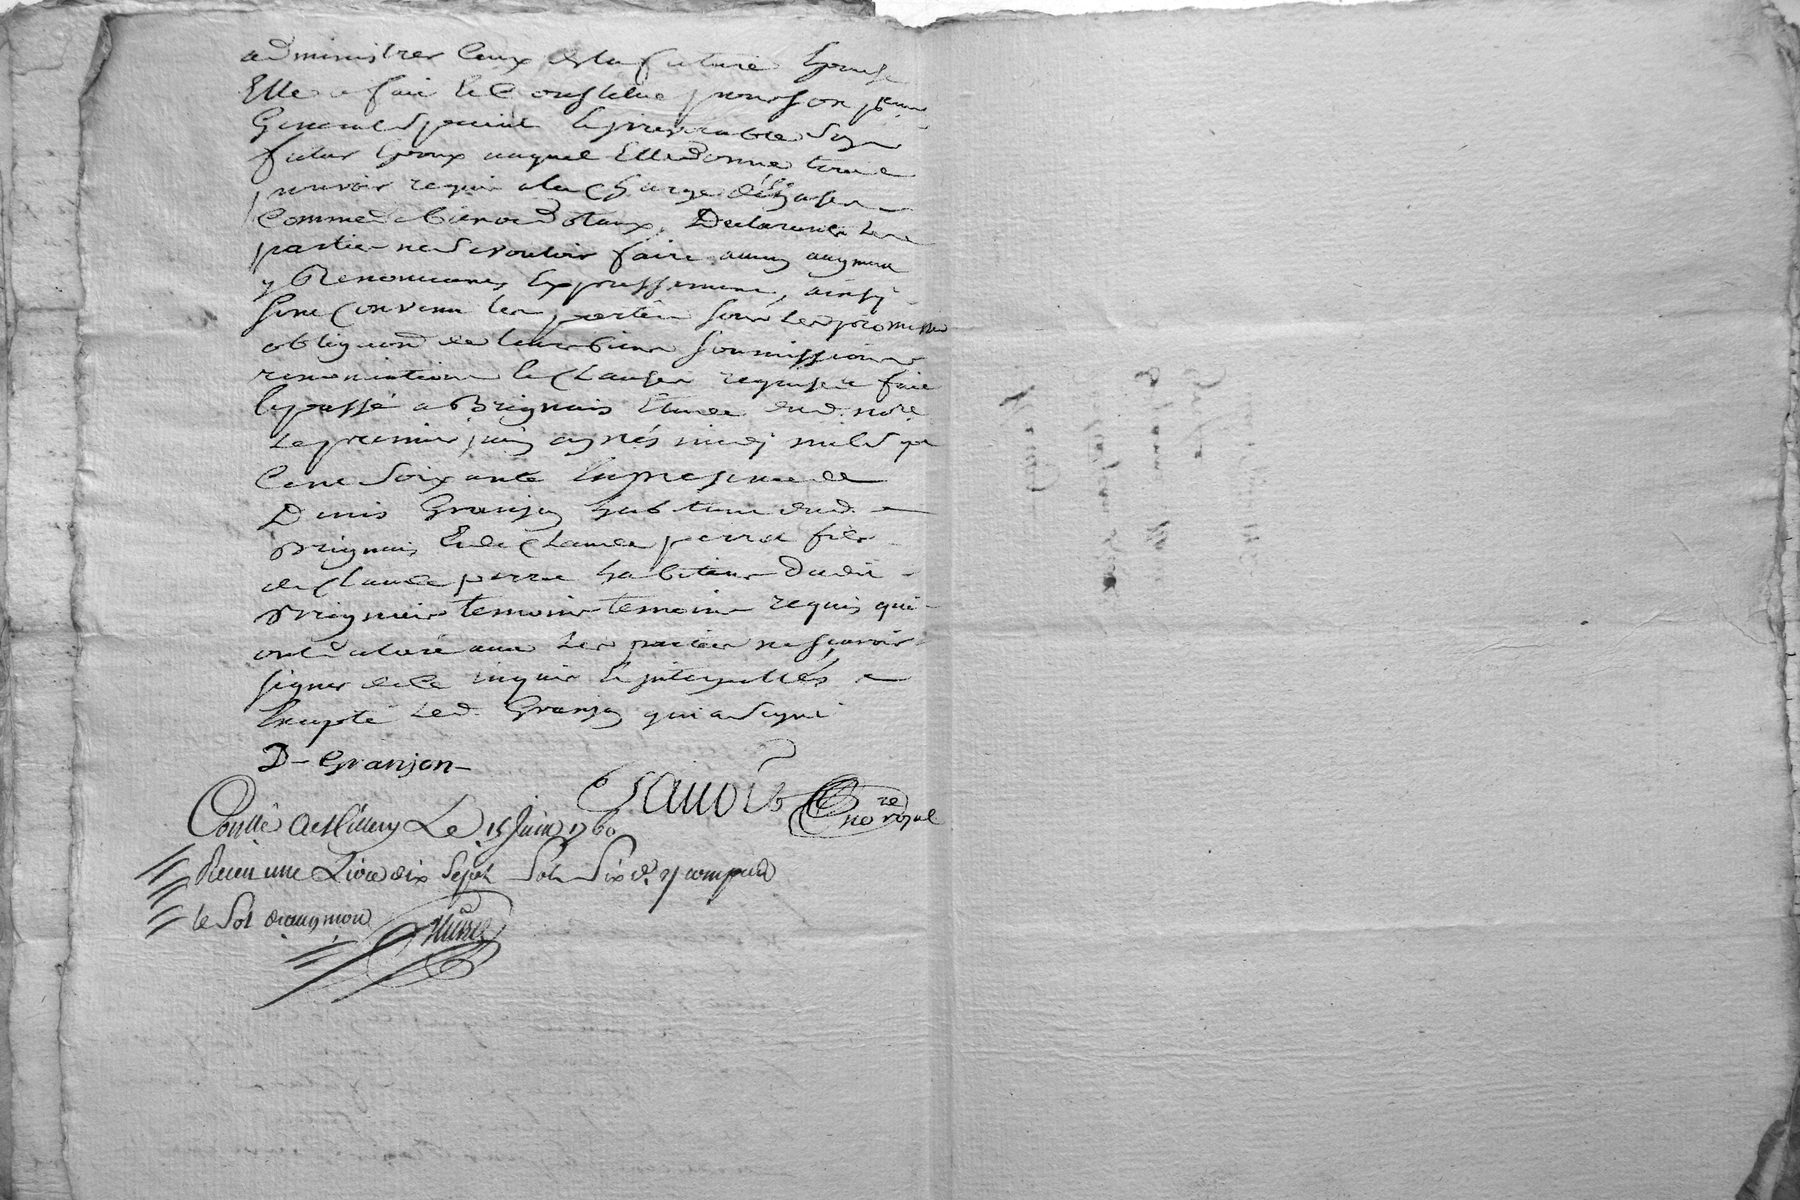 administrer Ceux de la future Epouse
Elle a fait Et Constitué pour son procur
General Special Et jrrevocable Son
futur Epoux auquel Elle donne tout
pouvoir requis a la Charge d'En user
Comme de biens Dotaux, Declarant Les
parties ne Se vouloir faire aucun augment
y Renoncant Expressement, ainsy
sont Convenu les parties sous Les promesses
obligaōn de leurs biens soumissions
renonciations Et Clauses requises fait
Et passé a Brignais Etude dud. nore
Le premier juin après midy mil Sept
Cent Soixante En presence de
Denis Granjon habitant dud.
Brignais Et de Claude perret fils
de Claude perret habitant Dudit
Brignais temoins temoins requis qui
ont declaré avec Les parties ne sçavoir
signer de Ce enquis Et jnterpellés
Excepté Led. Granjon qui a Signé
D- Granjon-
nore royal
Conllé a St Le 15 Juin 1760
Receu une Livre dix Sept Sols Six d. y compris
le Sol d'augmon